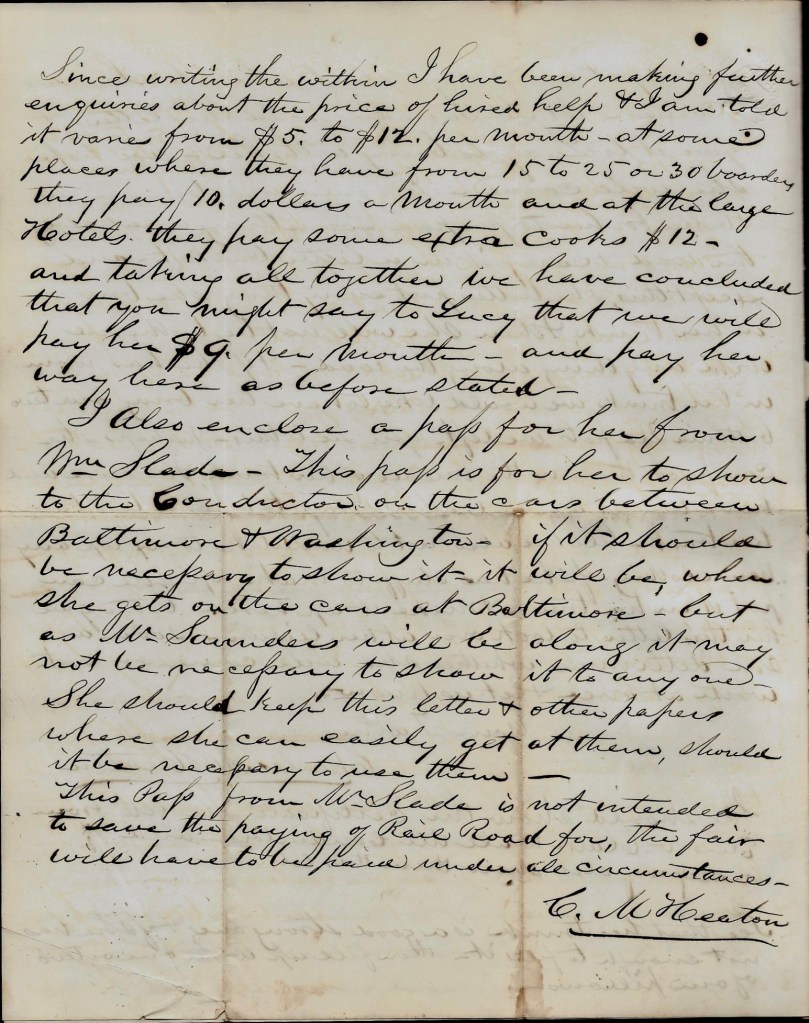 Since writing the within I have been making further
enquiries about the price of hired help & I am told
it varies from $5. to $12. per month - at some
places where they have from 15 to 25 or 30 boarders
they pay 10. dollars a month and at the large
Hotels. they pay some extra cooks $12 -
and taking all together we have concluded
that you might say to Lucy that we will
pay her $9. per month - and pay her
way here as before stated -
I Also enclose a paſs for her from
Wm Slade - This paſs is for her to show
to the Conductor on the cars between
Baltimore & Washington - if it should
be neceſsary to show it - it will be, when
she gets on the cars at Baltimore - but
as Mr Saunders will be along it may
not be neceſsary to show it to any one -
She should keep this letter & other papers
where she can easily get at them, should
it be neceſsary to use them —
This Paſs from Mr Slade is not intended
to save the paying of Rail Road for, the fair
will have to be paid under all circumstances -
C. M Heaton